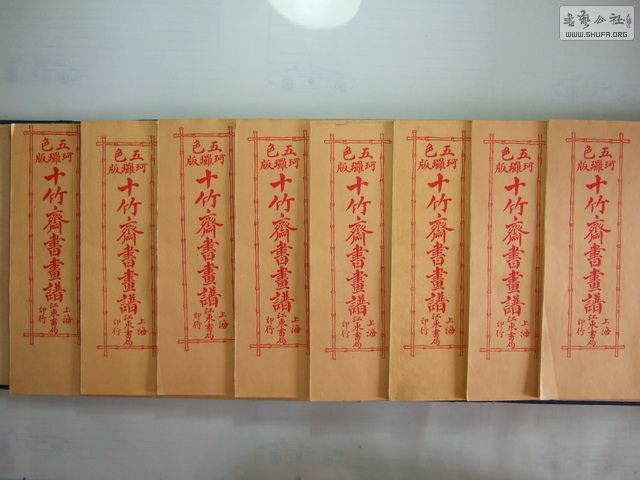 書藝公社
WWW.SHUFA.ORG
五色
珂玀版
十竹齋書畫譜
上海
江東書局
印行
五色
珂玀版
十竹齋書畫譜
上海
江東書局
印行
五色
珂玀版
十竹齋書畫譜
上海
江東書局
印行
五色
珂玀版
十竹齋書畫譜
上海
江東書局
印行
五色
珂玀版
十竹齋書畫譜
上海
江東書局
印行
五色
珂玀版
十竹齋書畫譜
上海
江東書局
印行
五色
珂玀版
十竹齋書畫譜
上海
江東書局
印行
五色
珂玀版
十竹齋書畫譜
上海
江東書局
印行